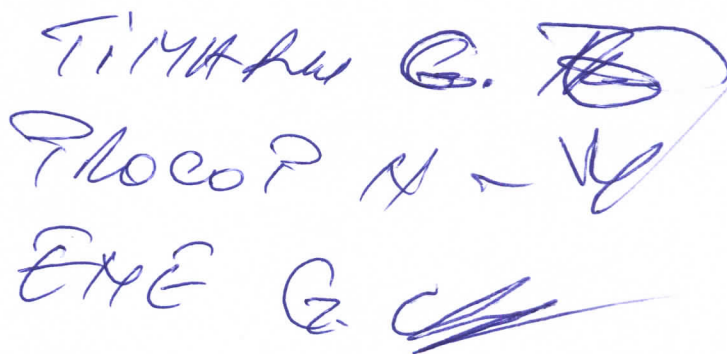 TIMARU G.
PROCOP N -
EME G.